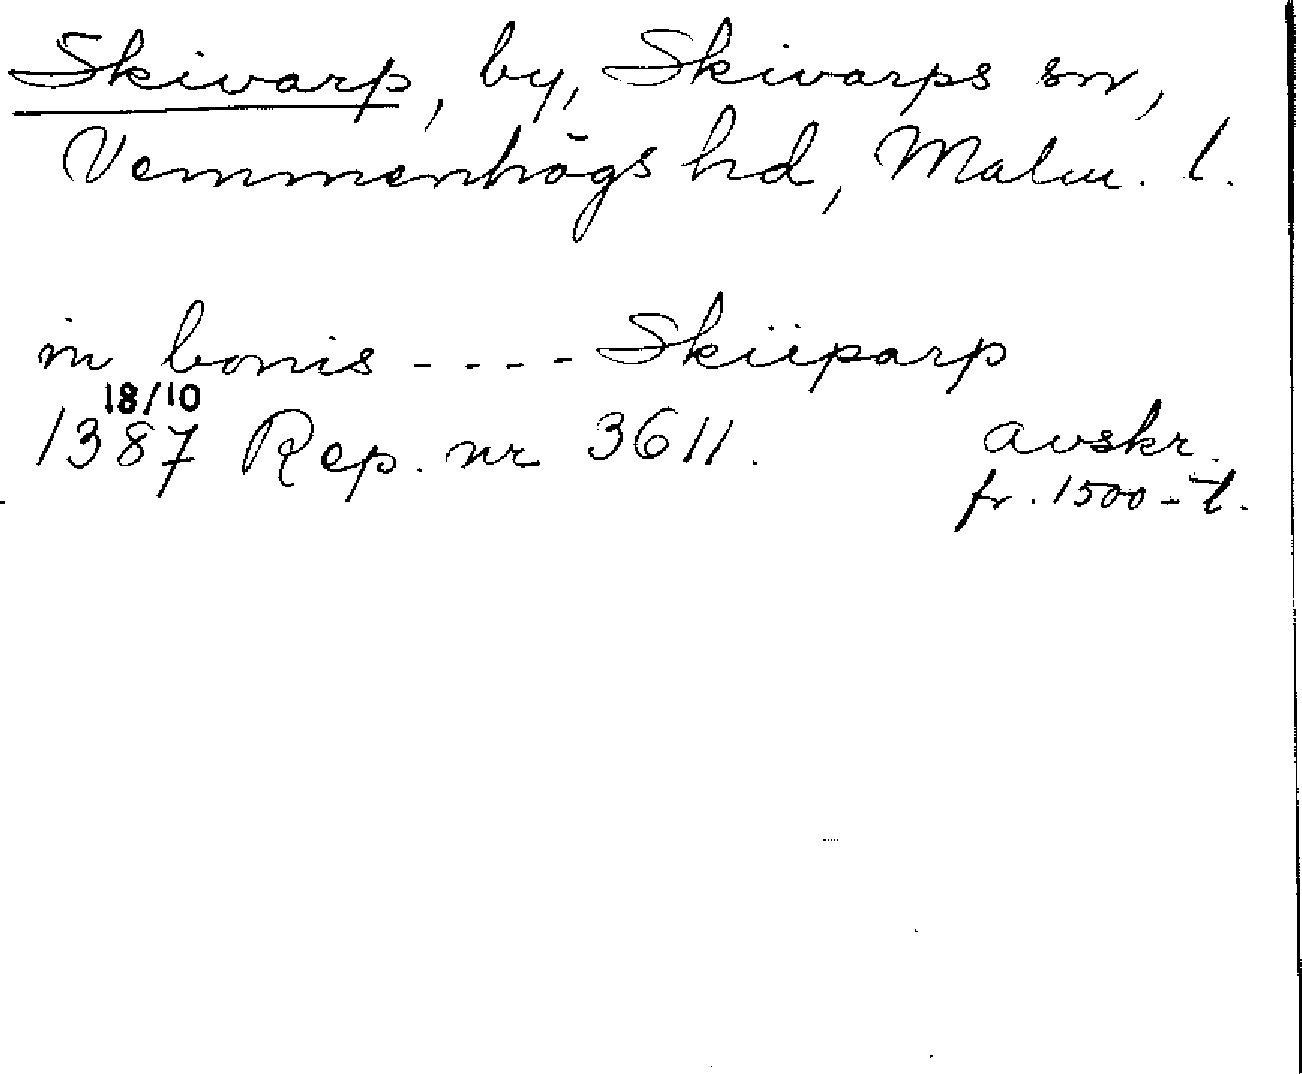 Skivarp, by, Skivarps sn,
Vemmenhögs hd, Malm. l.
in bonis - - - - Skiiparp
18/10
1387 Rep. nr 3611.
avskr.
fr. 1500-t.